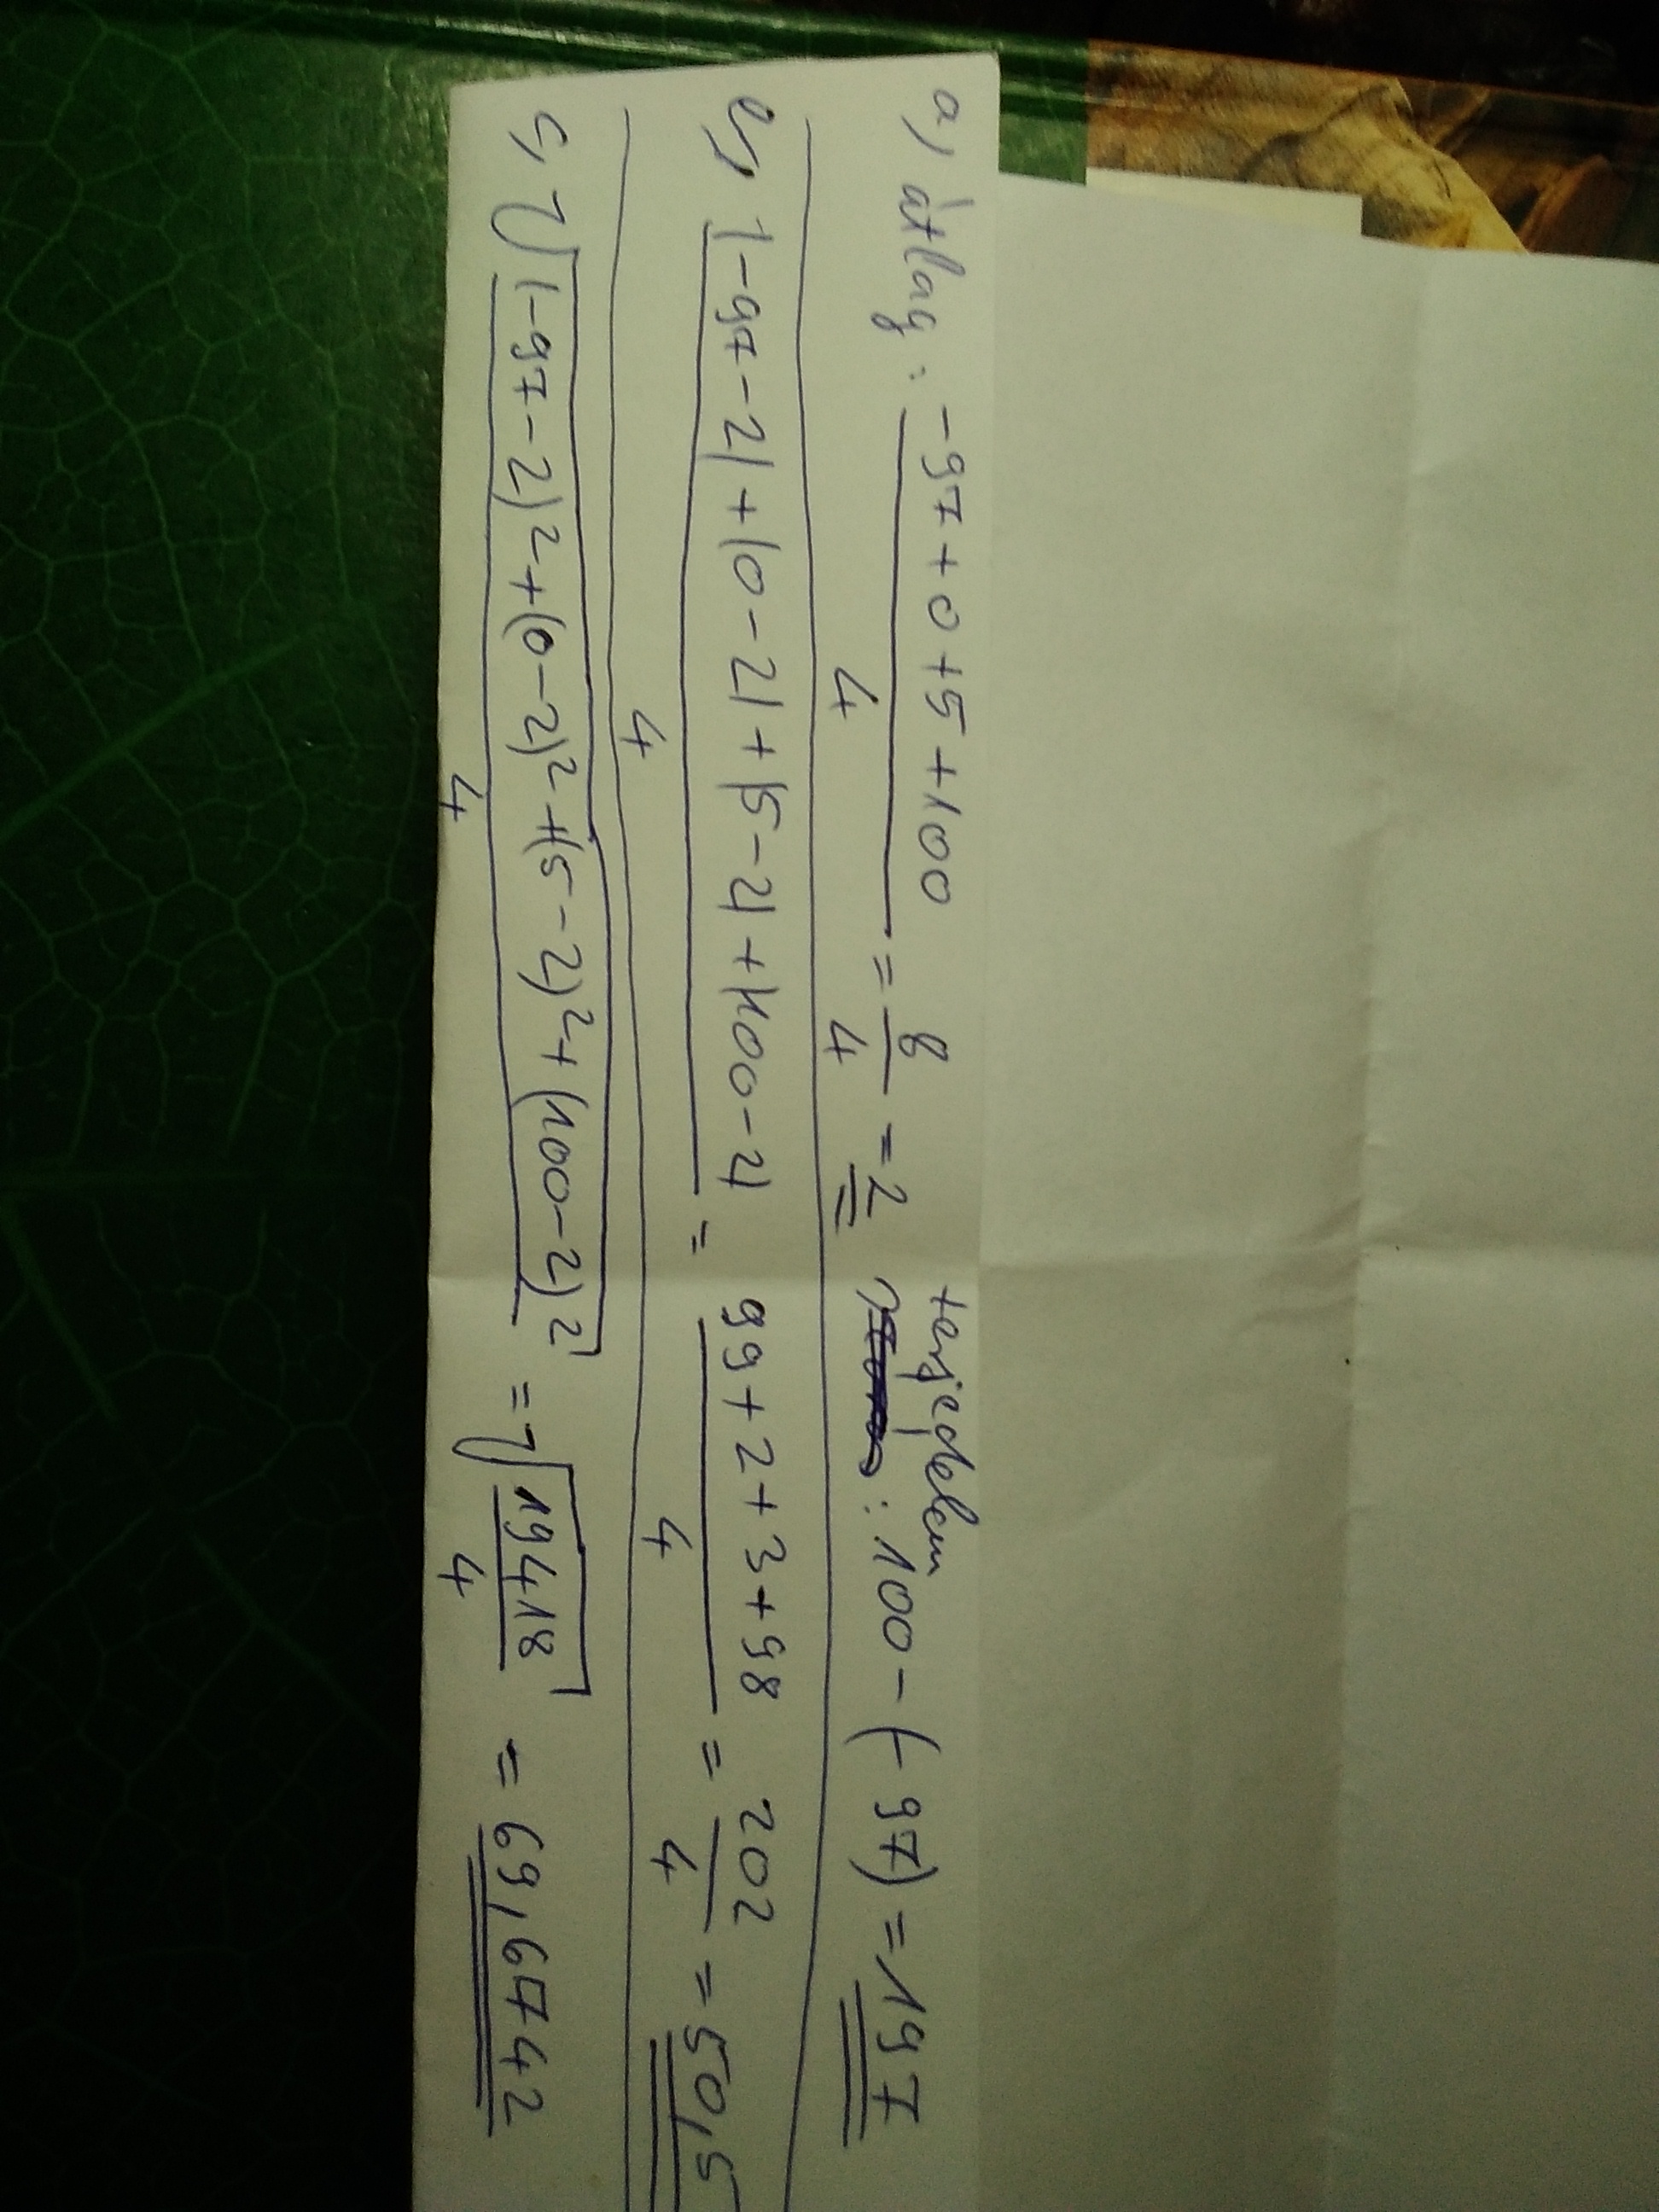 a, átlag: -97+0+5+100 / 4 = 8/4 = 2 terjedelem : 100-(-97) = 197
b, |-97-2|+|0-2|+|5-2|+|100-2| / 4 = 99+2+3+98 / 4 = 202/4 = 50,5
c, √((-97-2)²+(0-2)²+(5-2)²+(100-2)² / 4) = √(19418/4) = 69,6742